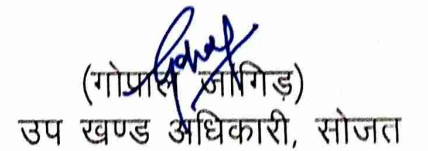 (गोपाल जांगिड़)
उप खण्ड अधिकारी, सोजत